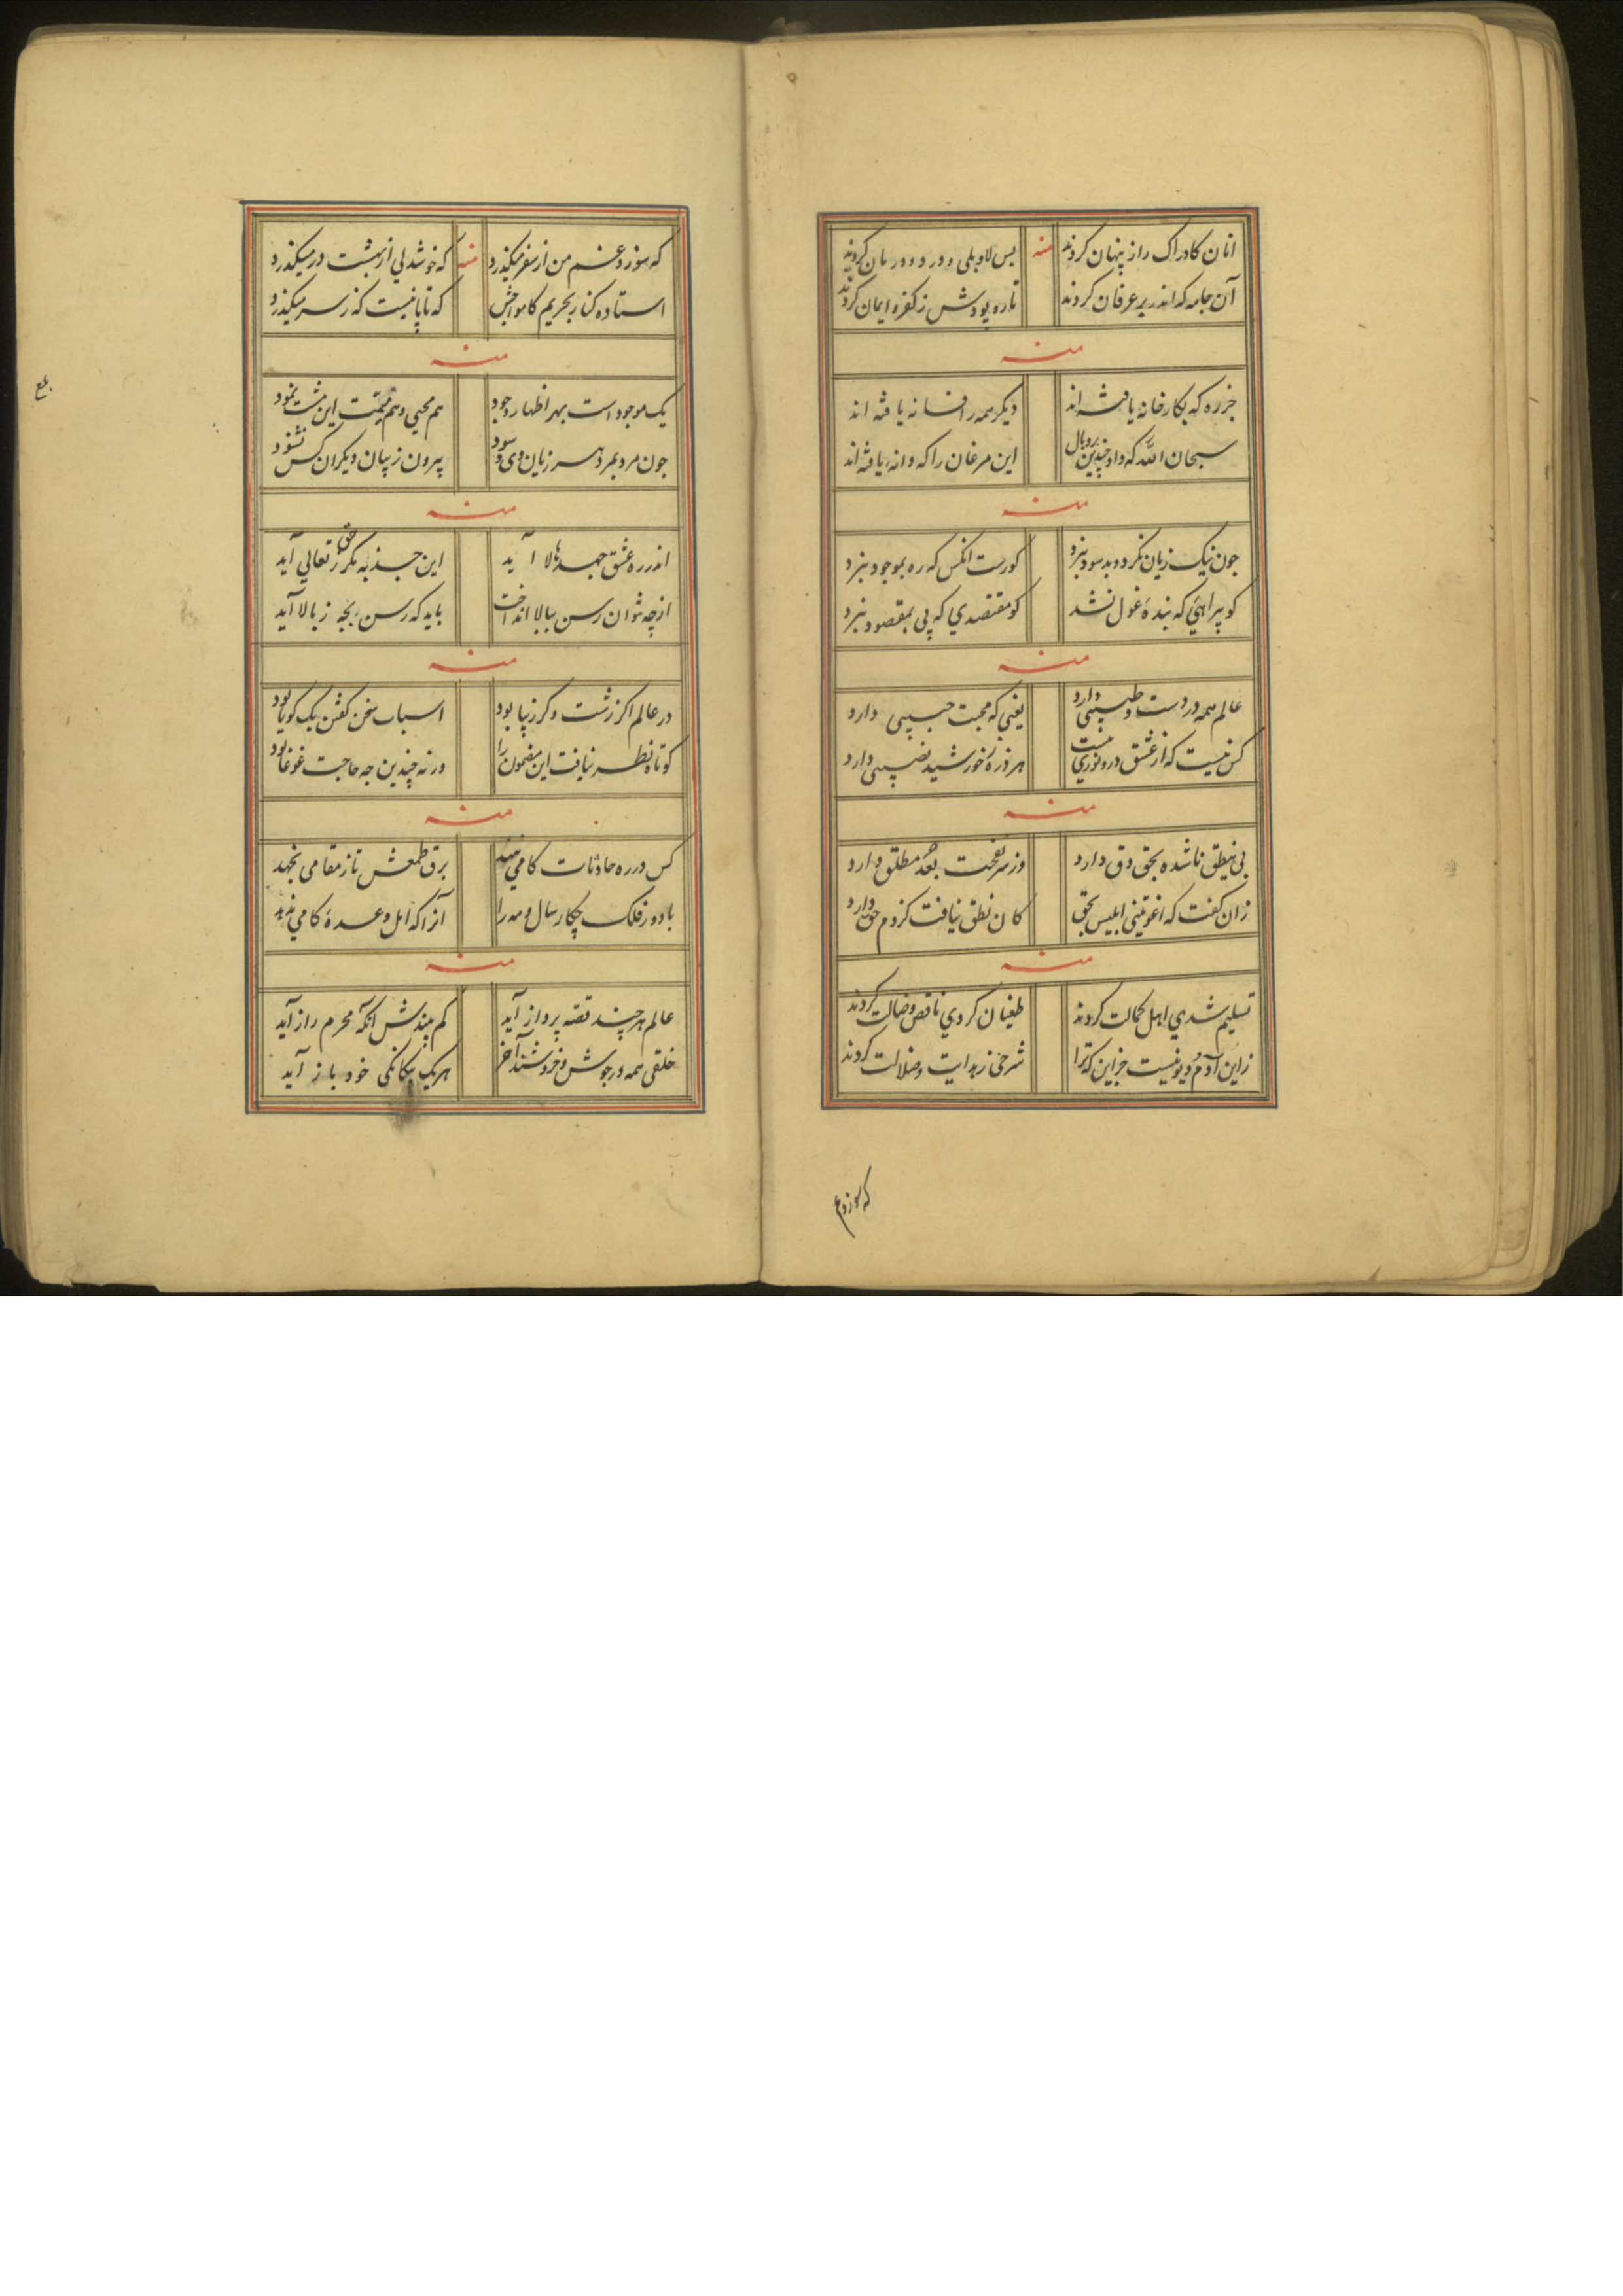 انان کادراک راز پنهان کردند منه بس لا و بلی و درد و درمان کردند
آن جامه که اندر بر عرفان کردند تار و پودش ز کفر و ایمان کردند
منه
جز ره که بکارخانه یافته اند دیکر همه را فسانه یافته اند
سبحان الله که داد چندین پر و بال این مرغان را که دانه یافته اند
منه
جون نیک زیان نکرد و بد سود نبرد کورست انکس که ره بموجود نبرد
کو پیراهیی که بندهٔ غول نشد کو مقتصدی که پی بمقصود نبرد
منه
عالم همه دردست و طبیبی دارد یعنی که محبت حبیبی دارد
کس نیست که از عشق درو نوری نیست هر ذره ز خورشید نصیبی دارد
منه
بی نطق ناشده بحق دق دارد وز سر نفخت بعد مطلق دارد
زان کفت که اغویتنی ابلیس بحق کان نطق نیافت کز دم حق دارد
منه
تسلیم شدی اهل کمالت کردند طغیان کردی ناقص و ضالت کردند
زاین آدم و دیو نیست جز این که ترا شرحی ز هدایت و ضلالت کردند
که سوز و غم
که سوز و غم من از سقر میکذرد منه که خوشدلی از بهشت در میکذرد
استاده کنار بحریم کامواجش که تا پا نیست که ز سر میکذرد
منه
یک موجود است بهر اظهار وجود هم محیی و هم ممیت این مشت نمود
جون مرد بمرد هر زیان وی و سود بیرون ز بیان دیکران کس نشنود
منه
اندر ره عشق جهد ها لا آید این جذبه مکر ز حق تعالی آید
از چه نتوان رسن ببالا انداخت باید که رسن بچه ز بالا آید
منه
در عالم اکر زشت و کر زیبا بود اسباب سخن کفتن یک کویا بود
کوتاه نظر نیافت این مضمون را ورنه چندین جه حاجت غوغا بود
منه
کس در ره حادثات کامی ننهد برق طمعش تا ز مقامی نجهد
با دور فلک چکار سال و مه را آنرا که اهل وعدهٔ کامی ندهد
منه
عالم هر چند قصه پرداز آید کم بیندش انکه محرم راز آید
خلقی همه در جوش و خروشند آخر هر یک بمکانکی خود باز آید